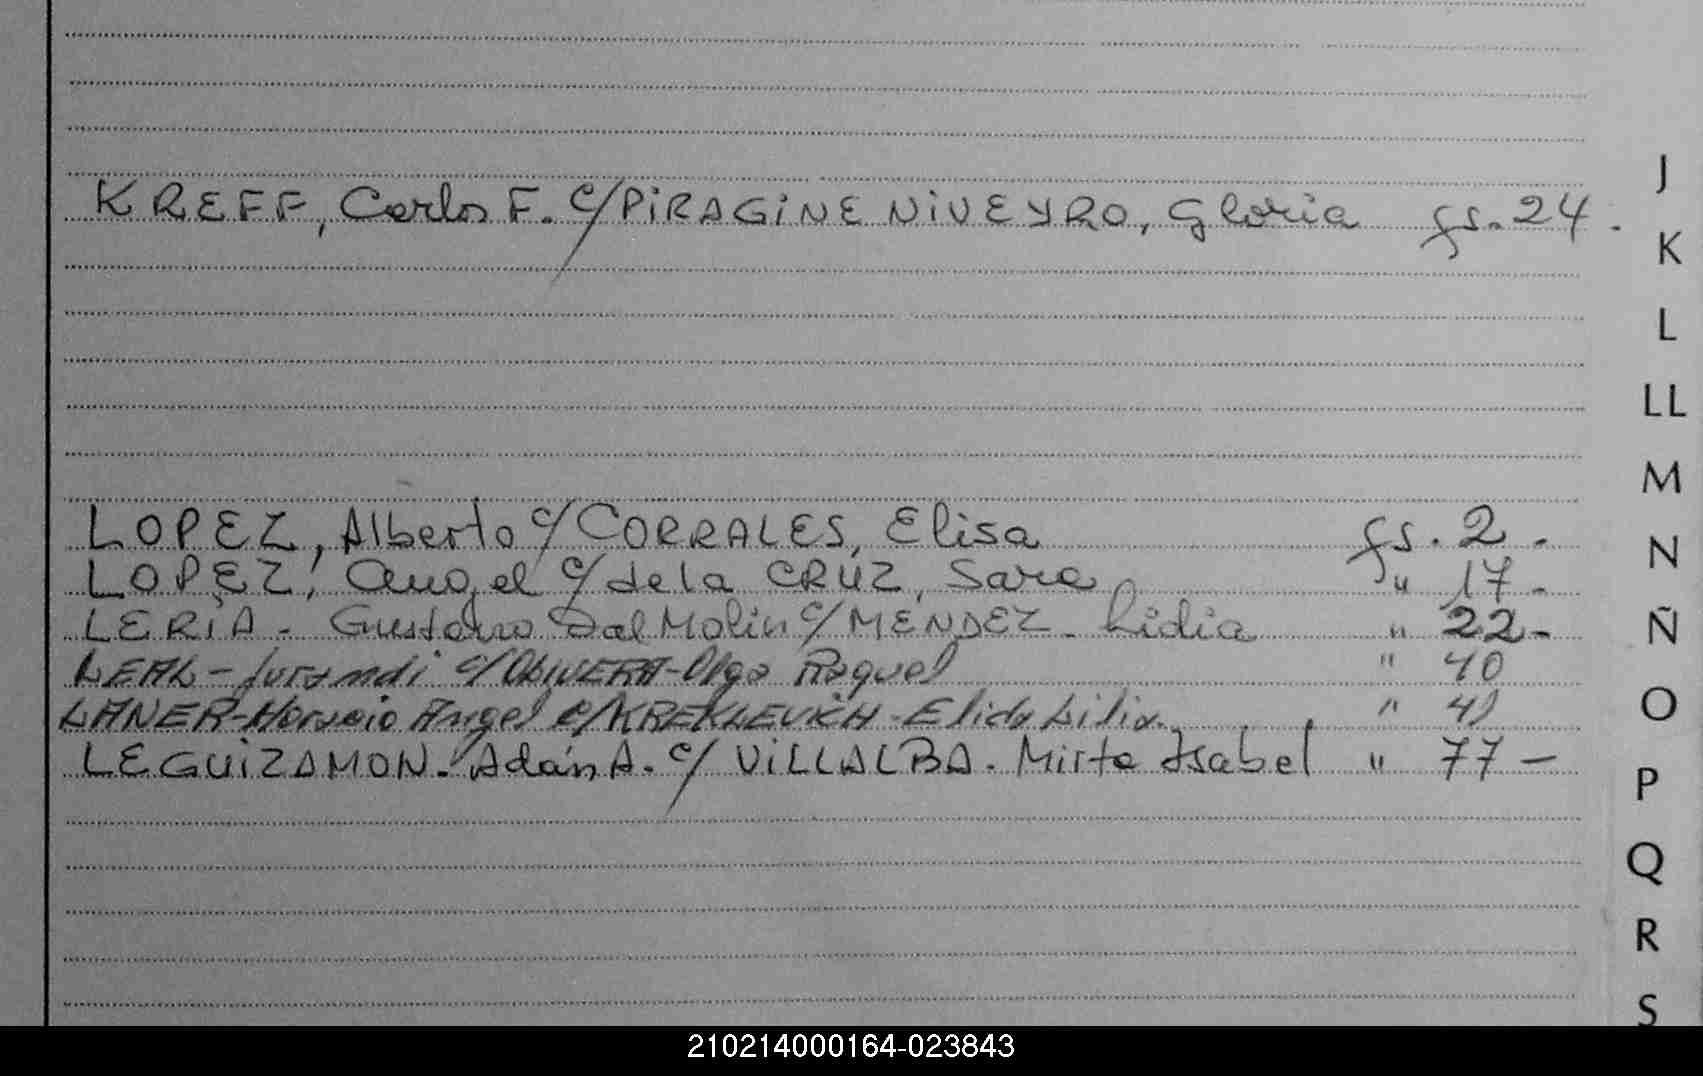 KREFF, Carlos F. c/PIRAGINE NIVEYRO, Gloria fs. 24.
LOPEZ, Alberto c/ CORRALES, Elisa fs. 2.
LOPEZ, Angel c/ de la CRUZ, Sara " 17.-
LERIA - Gustavo Dal Molin c/ MENDEZ - Lidia " 22.-
LEAL - Jurandi c/ OLIVERA - Olga Raquel " 40
LANER - Horacio Angel c/ KREKLEVICH - Elida Lilia "
LEGUIZAMON - Adán A. c/ VILLALBA - Mirta Isabel " 77 -
J
K
L
LL
M
N
Ñ
O
P
Q
R
S
210214000164-023843